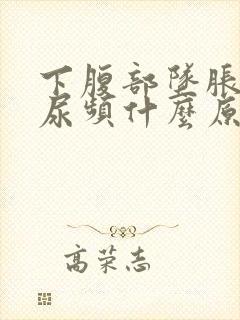 下腹部墜脹
尿頻什麼原
高荣志